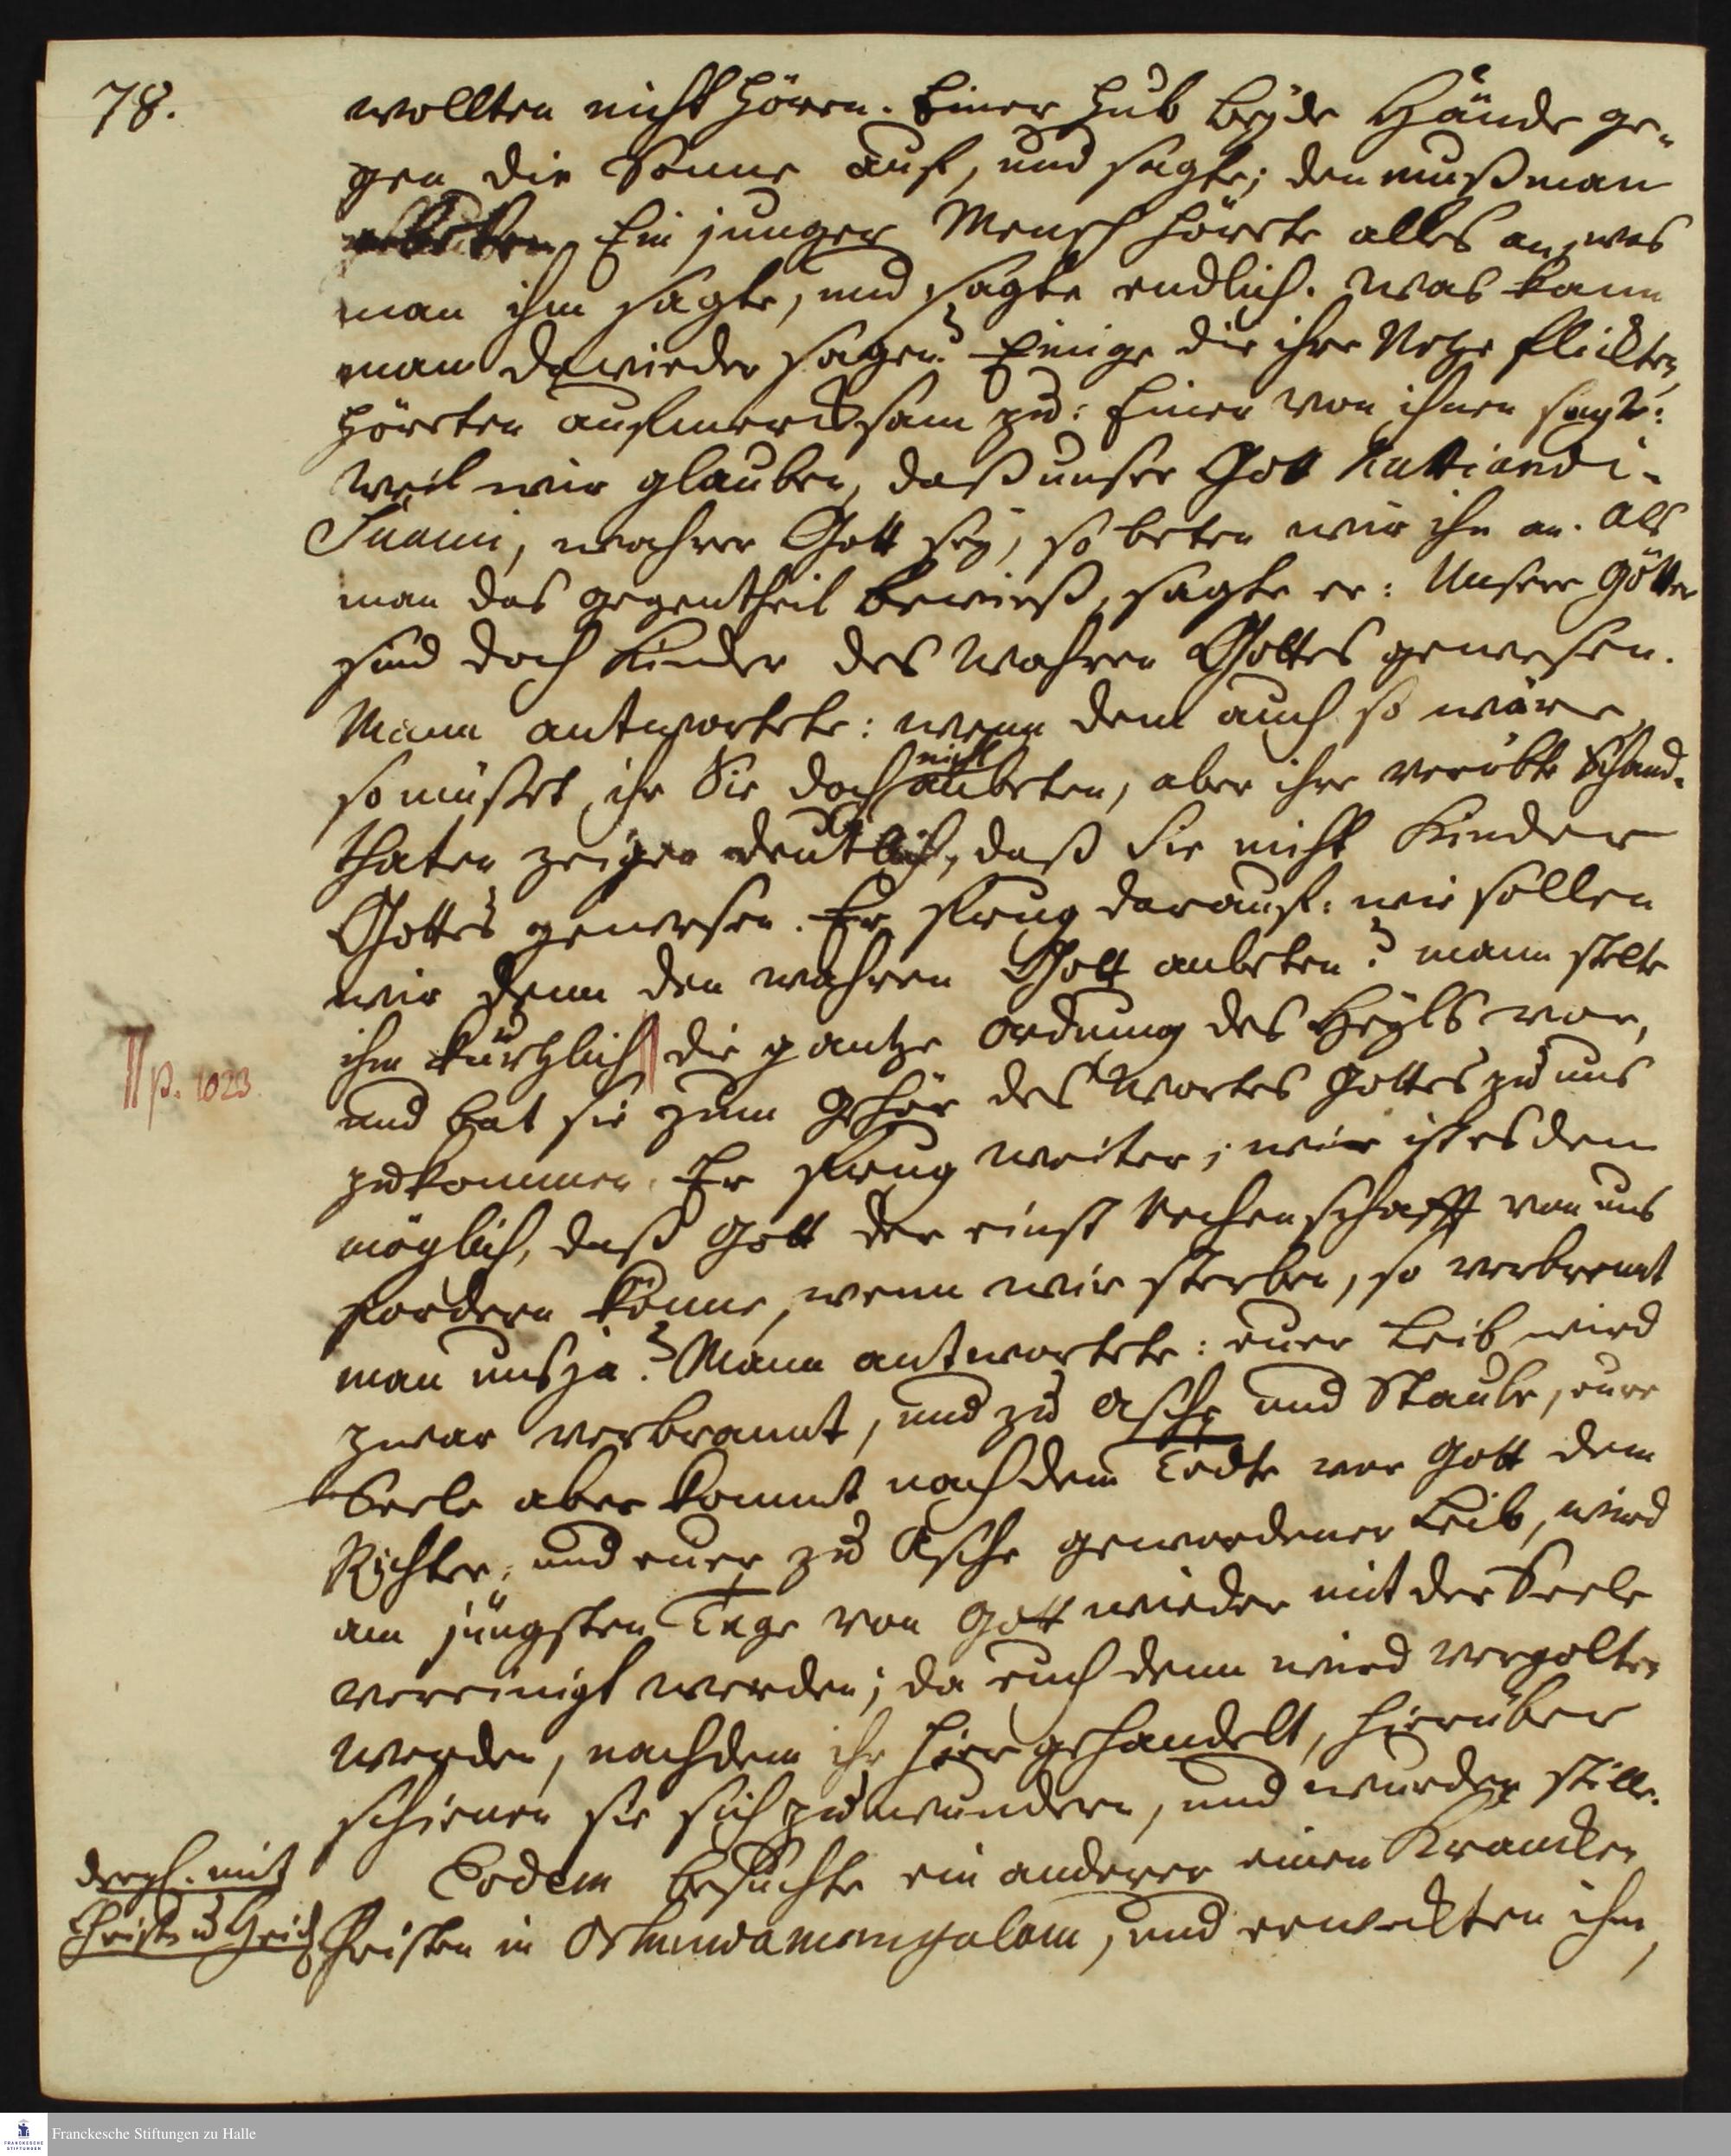 78.
wollten nicht hören. Einer hub beyde Hände ge-
gen die Sonne auf, und sagte; den muß man
anbeten. Ein junger Mensch hörete alles an, was
man ihm sagte, und sagte endlich. was kann
man dawieder sagen? Einige die ihre Netze flickten,
höreten aufmercksam zu: Einer von ihnen sagte:
weil wir glauben, daß unser Gott
Suami, wahrer Gott sey, so beten wir ihn an. Als
man das gegentheil bewieß, sagte er: Unsere Götter
sind doch Kinder des Wahren Gottes gewesen.
Mann antwortete: wenn dem auch so wäre,
so müßet ihr Sie doch nicht anbeten, aber ihre verübte Schand-
thaten zeigen deutlich, daß Sie nicht Kinder
Gottes gewesen. Er frug darauf: wie sollen
wir denn den wahren Gott anbeten? mann stelte
ihm kürtzlich die gantze Ordnung des Heyls vor,
p. 1023
und bat sie zum Gehör des Wortes Gottes zu uns
zu kommen. Er frug weiter; wie ist es denn
möglich, daß Gott der einst Rechenschafft von uns
fordern könne, wenn wir sterben, so verbrennt
man uns ja? Mann antwortete: euer Leib wird
zwar verbrannt, und zu Asche und Staube, eure
Seele aber kommt nach dem Todte vor Gott dem
Richter, und euer zu Asche gewordener Leib, wird
am jüngsten Tage von Gott wieder mit der Seele
vereinigt werden; da euch denn wird vergolten
werden, nachdem ihr hier gehandelt, hierüber
schienen sie sich zu wundern, und wurden stille.
dergl. mit
Christ. u Heid
Eodem besuchte ein anderer einen Krancken
Christen in und erweckten ihn,
Franckesche Stiftungen zu Halle